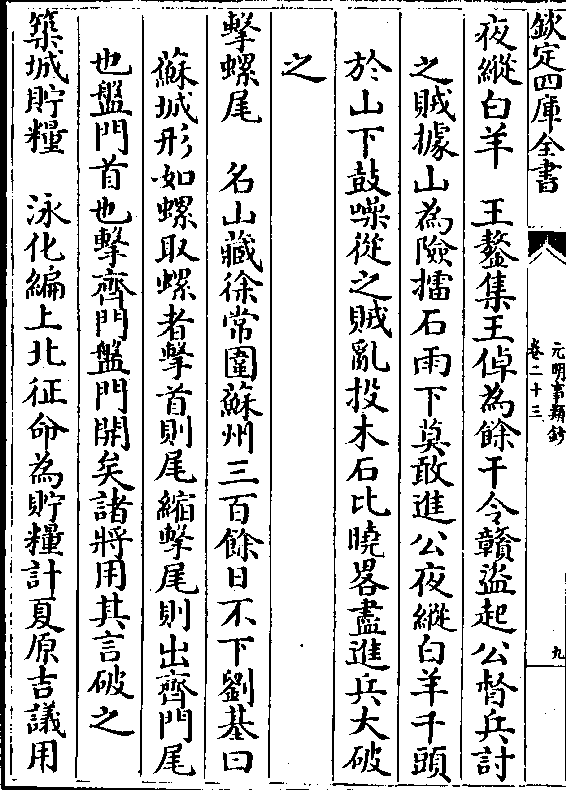 欽定四庫全書
元明事類鈔
卷二十三
九
夜縱白羊　王鏊集王倬為餘干令贛盜起公督兵討
之賊據山為險擂石雨下莫敢進公夜縱白羊千頭
於山下鼓噪從之賊亂投木石比曉畧盡進兵大破
之
擊螺尾　名山藏徐常圍蘇州三百餘日不下劉基曰
蘇城形如螺取螺者擊首則尾縮擊尾則出齊門尾
也盤門首也擊齊門盤門開矣諸將用其言破之
築城貯糧　泳化編上北征命為貯糧計夏原吉議用